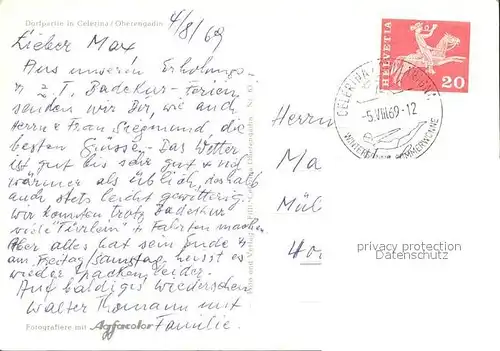 Dorfpartie in Celerina/Oberengadin
4/8/69
Lieber Max
Aus unseren Erholungs-
u z. T. Badekur-Ferien
senden wir Dir, wie auch
Herrn & Frau Siegmund, die
besten Grüsse. Das Wetter
ist gut bis sehr gut & viel
wärmer als üblich, deshalb
auch stets leicht gewitterig
wir konnten trotz Badekur
viele "Türlein" & Fahrten machen
Aber alles hat sein Ende &
am Freitag/Samstag heisst es
wieder packen, leider.
Auf baldiges Wiedersehen
Walter Thomann mit
Familie.
Fotografiere mit Agfacolor
HELVETIA
20
CELERINA
-5.VIII.69-12
Herrn
Ma
Mül
400
privacy protection
Datenschutz